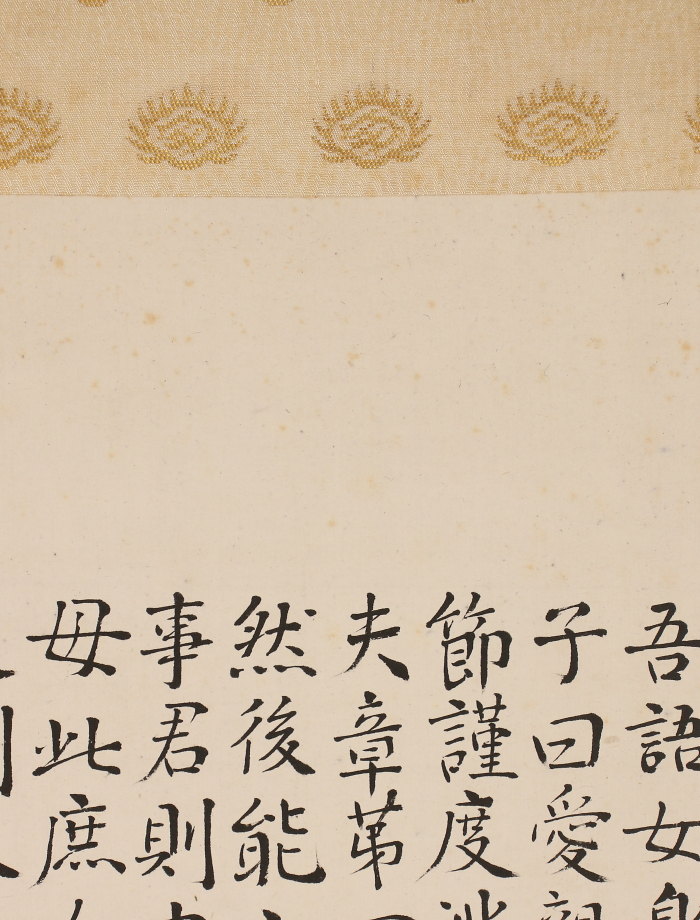 吾語女身
子曰愛親
節謹度
夫章第
然後能
事君則
母此庶